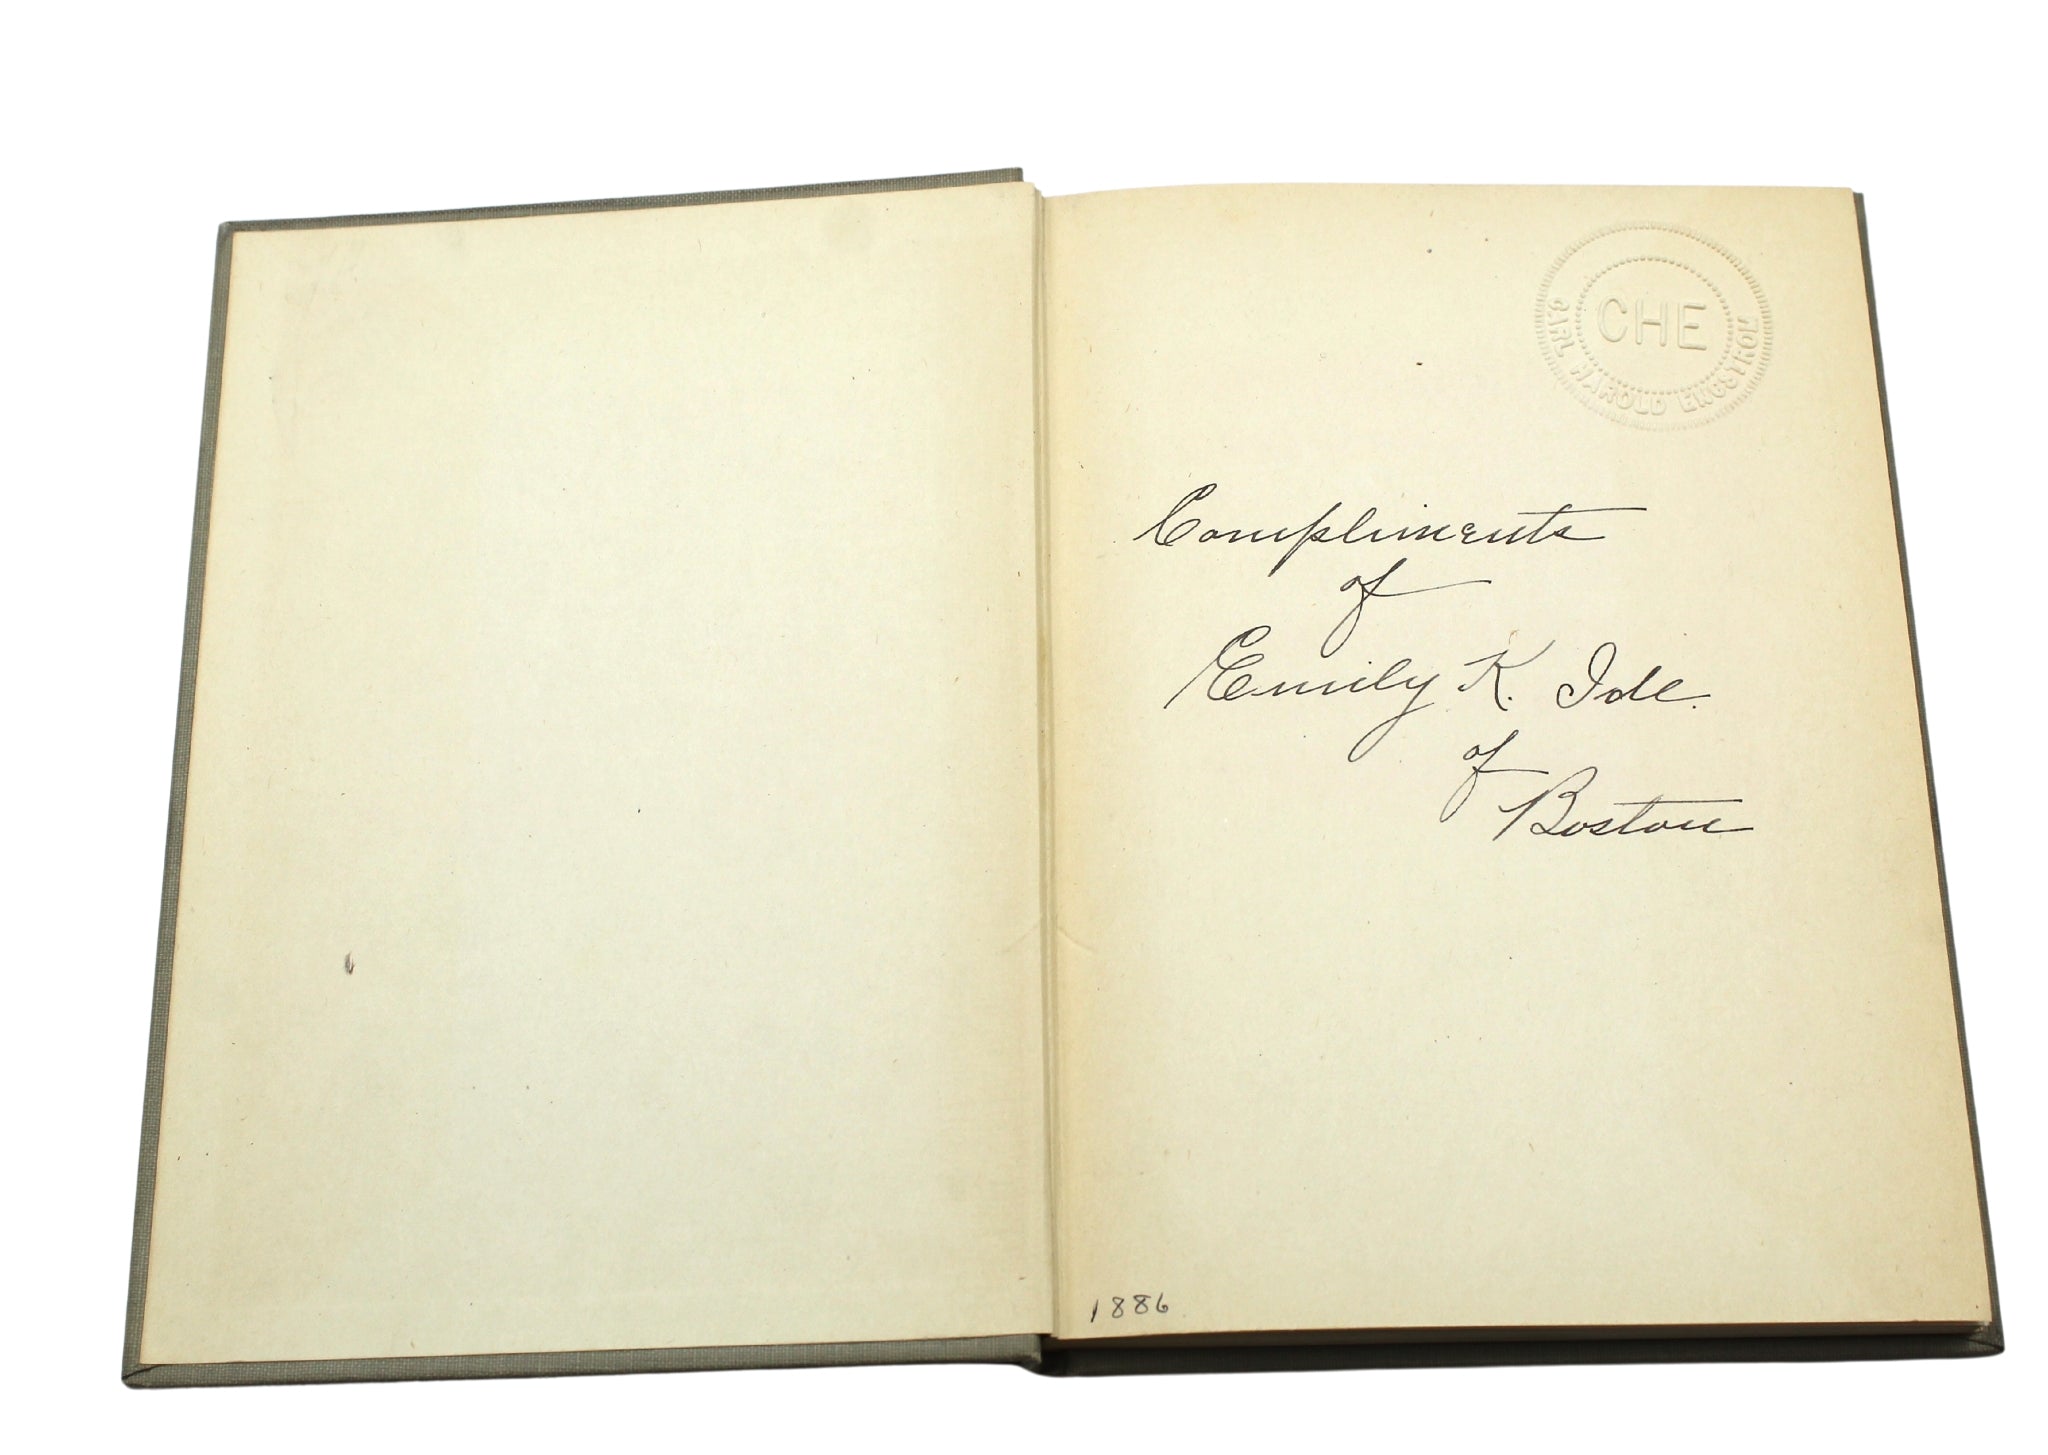 CHE
CARL HAROLD ENGSTROM
Compliments
of
Emily K. Ide.
of
Boston
1886